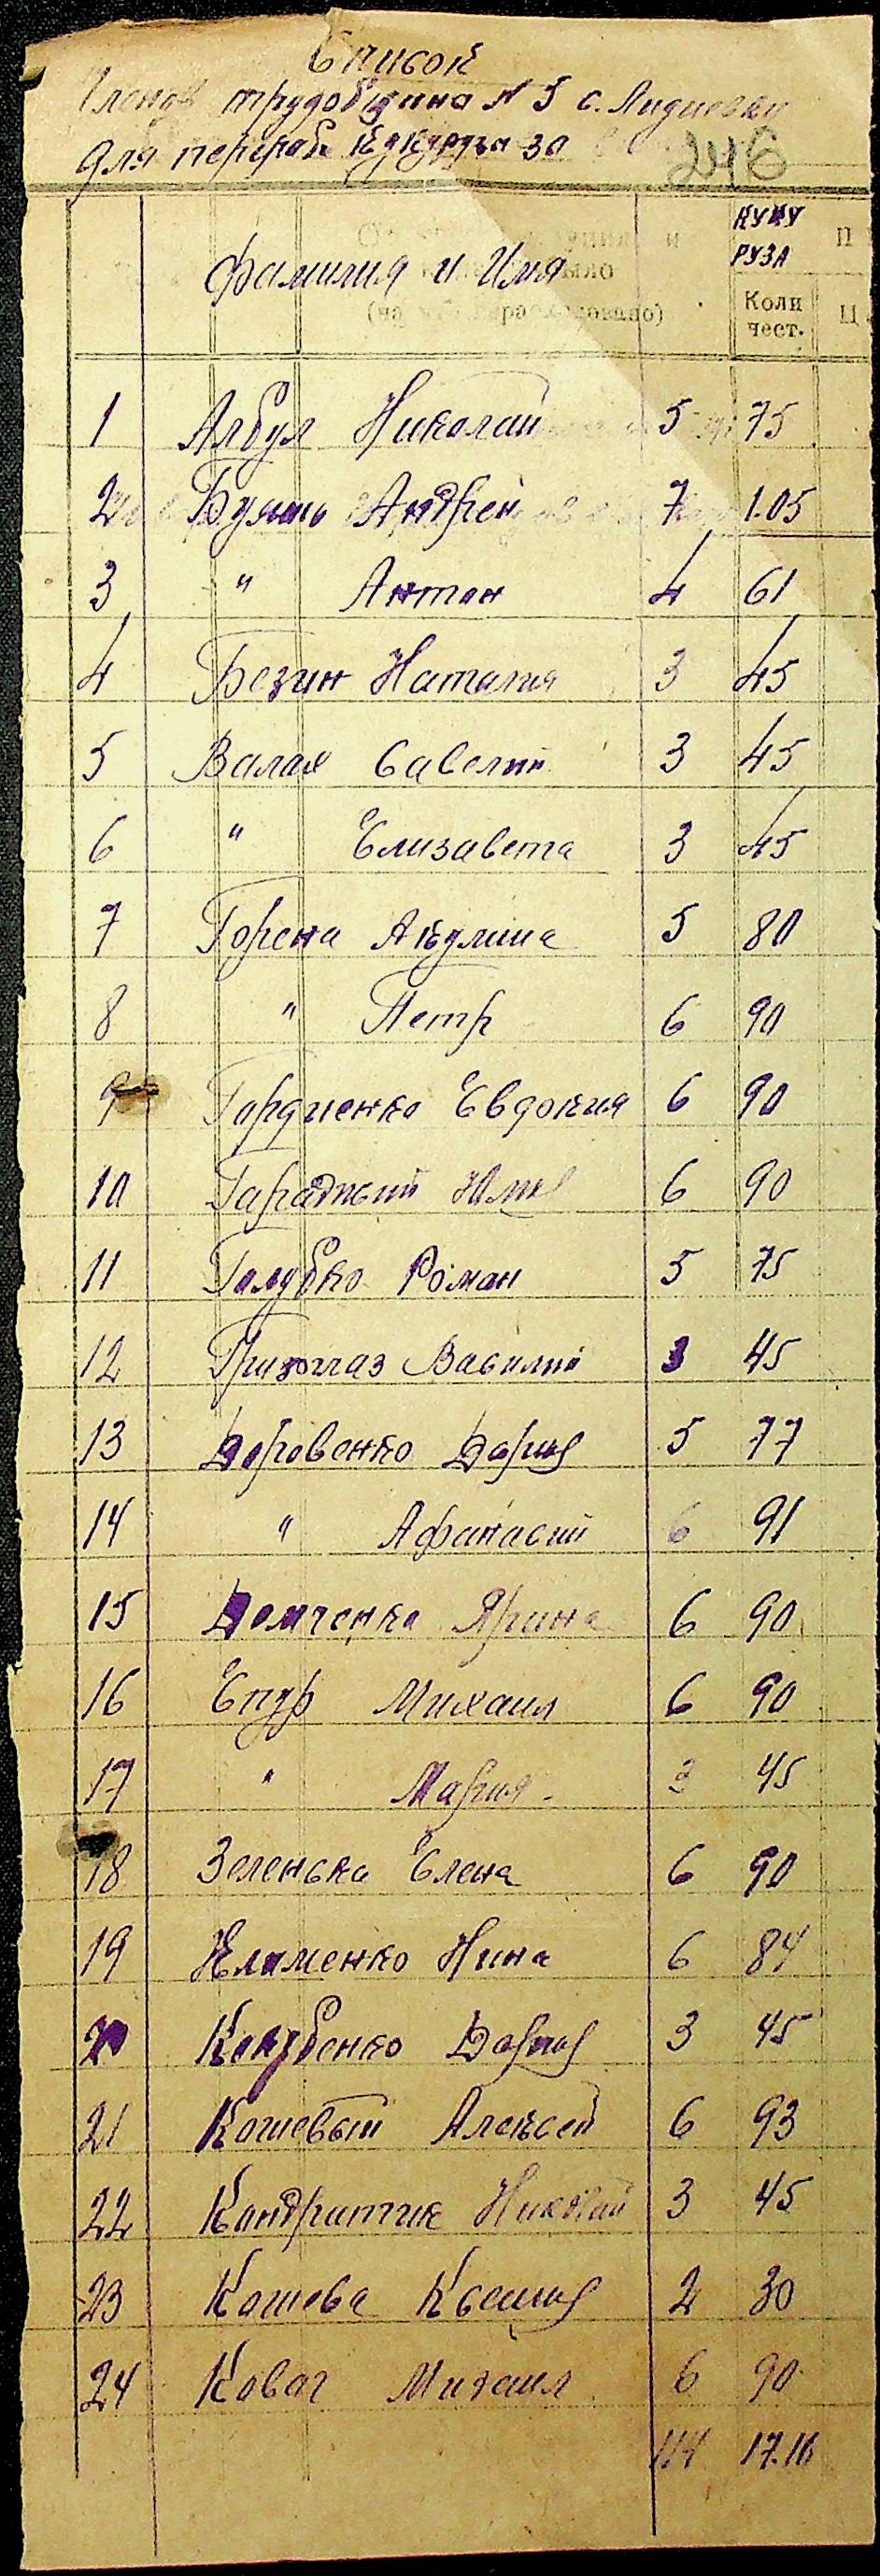 Список
Членов трудобщина № 5 с. Лидиевки
для перераб кукурузы за
246
Фамилия и Имя
КУКУ
РУЗА
Коли
чест.
1 Албул Николай 5 75
2 Буяло Андрей 7 1.05
3 " Антон 4 61
4 Безин Наталия 3 45
5 Валах Савелий 3 45
6 " Елизавета 3 45
7 Горена Акулина 5 80
8 " Петр 6 90
9 Гордиенко Евдокия 6 90
10 6 90
11 Голубко Роман 5 75
12 Григораз Василий 3 45
13 Доровенко Дария 5 77
14 " Афанасий 6 91
15 Демченко Ярина 6 90
16 Епур Михаил 6 90
17 " Мария 3 45
18 Зеленска Елена 6 90
19 Клименко Нина 6 84
20 Дария 3 45
21 Кошевый Алексей 6 93
22 Кондратик Николай 3 45
23 Кошева Ксения 2 30
24 Ковач Михаил 6 90
114 17.16